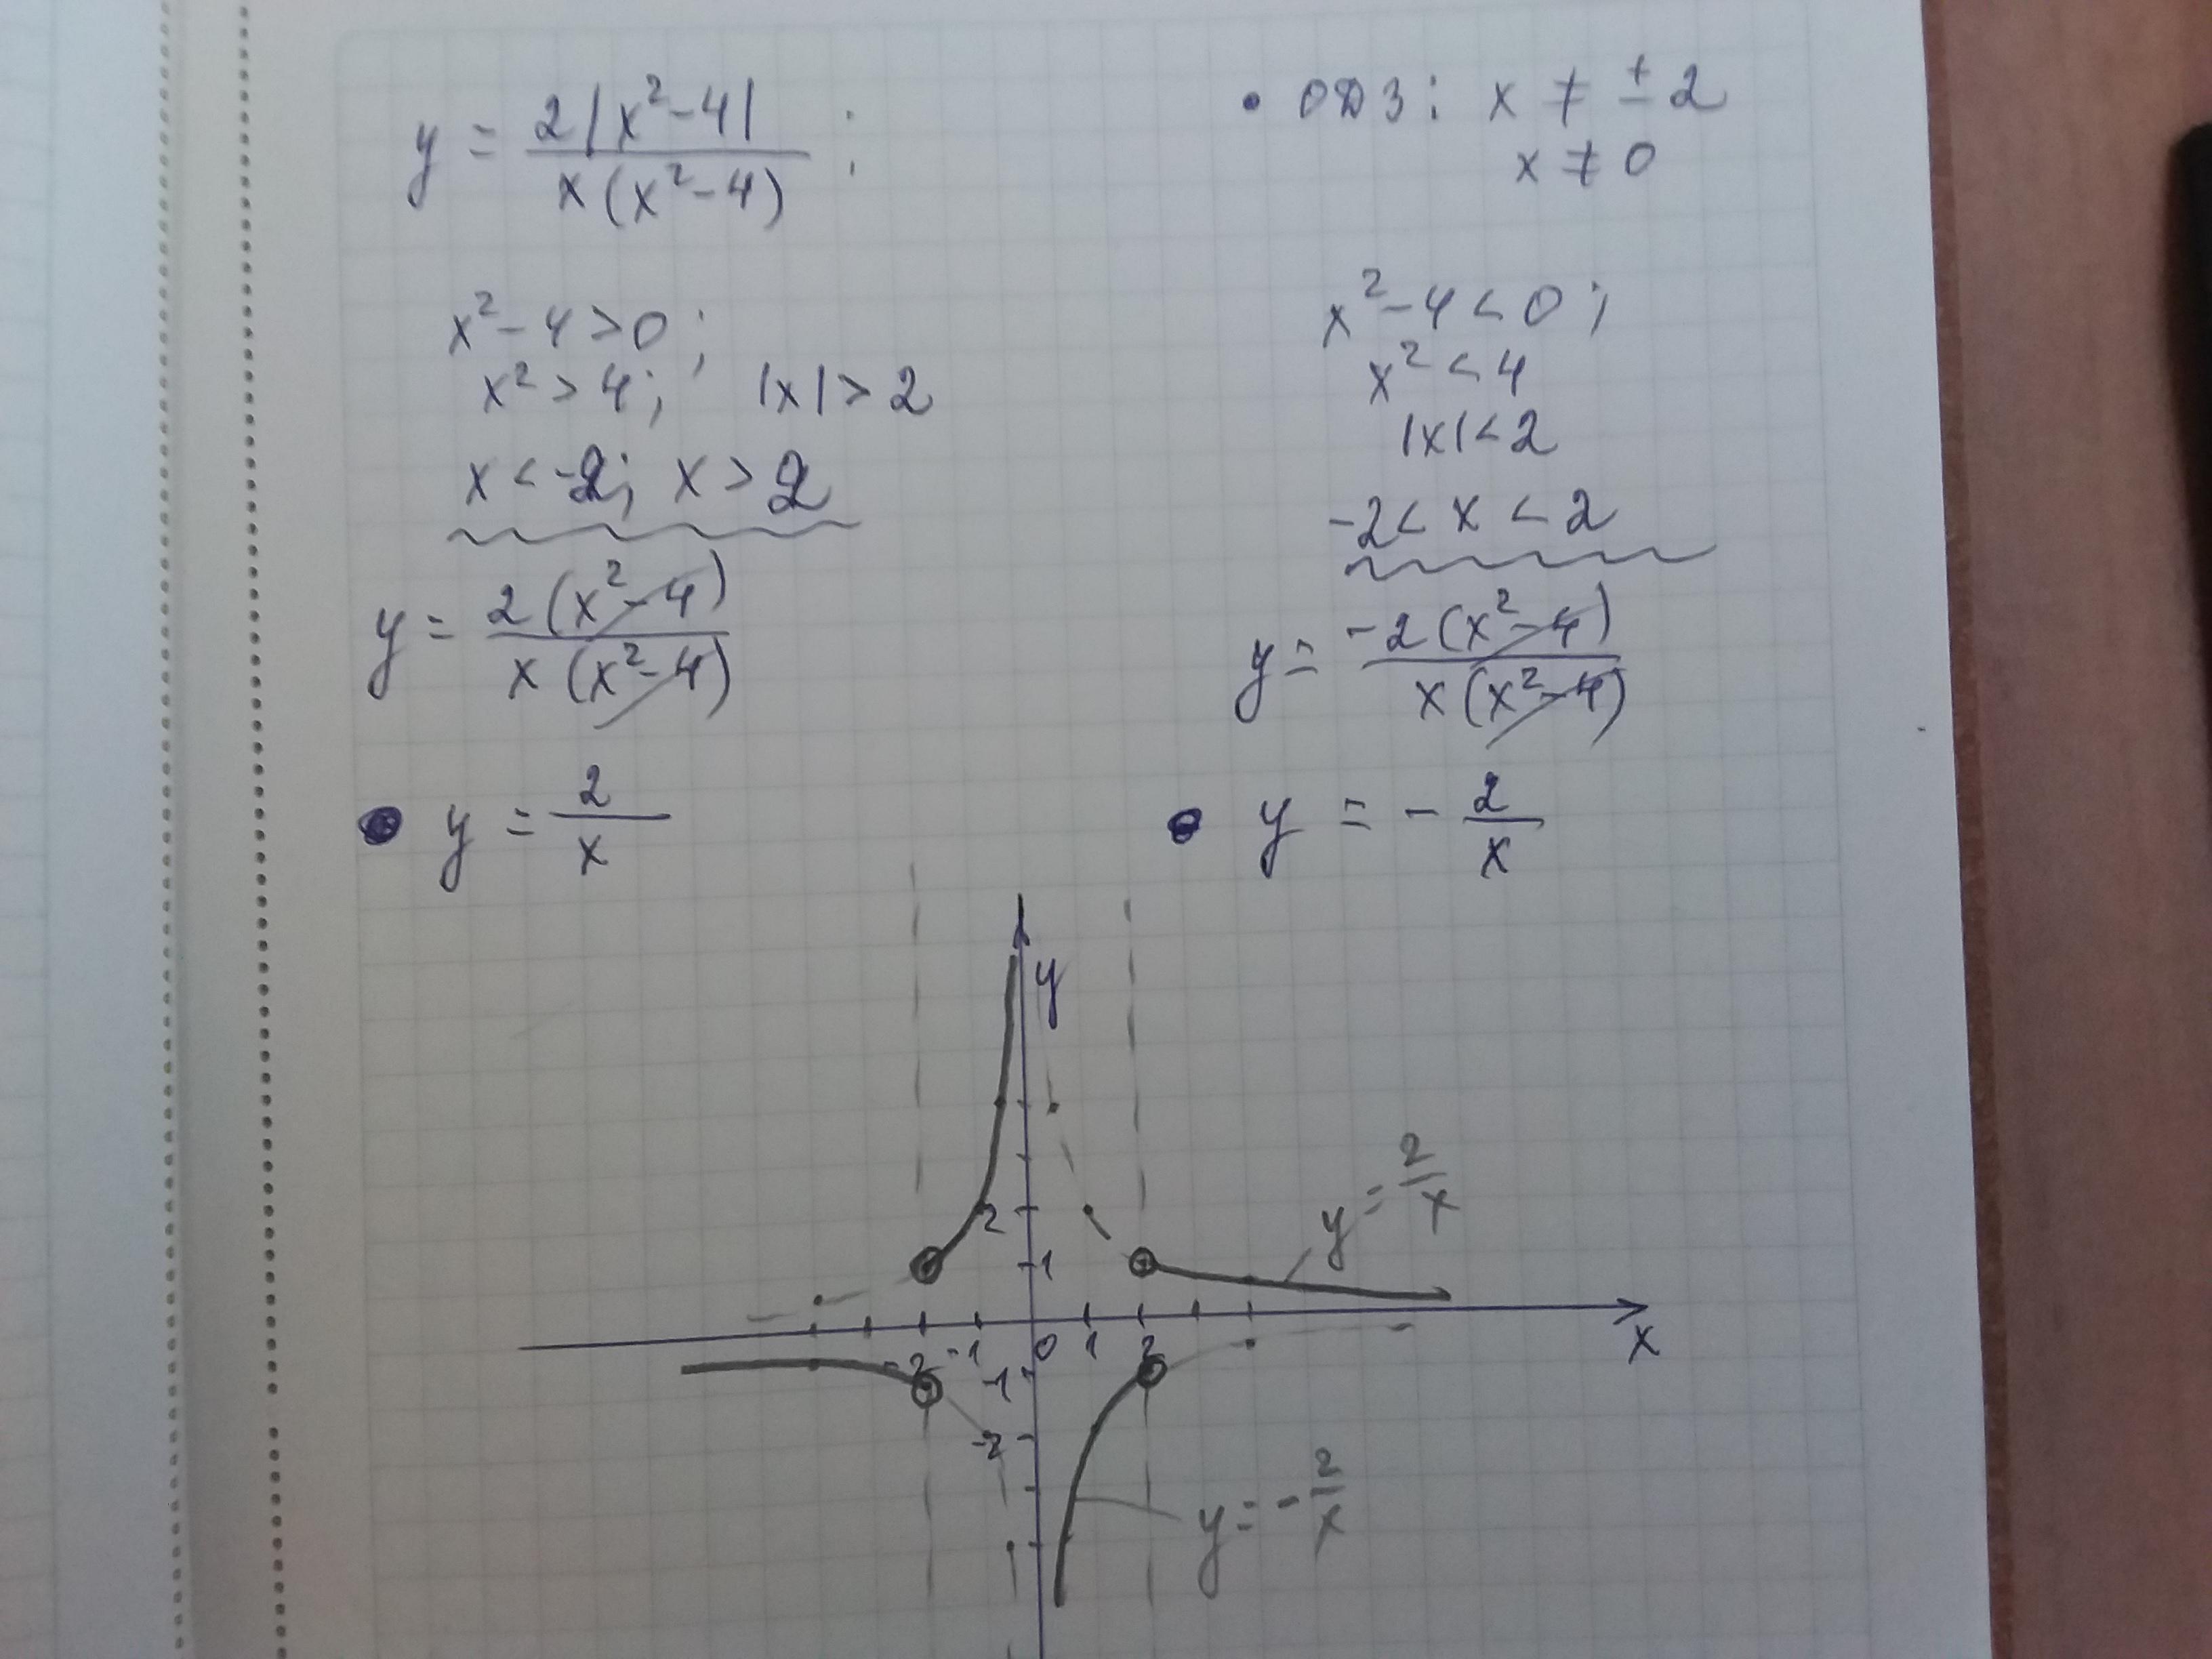 y = 2|x²-4| / x(x²-4) ;
• ОДЗ: x ≠ ± 2
x ≠ 0
x²-4>0;
x²>4; |x|>2
x<-2; x>2
y = 2(x²-4) / x(x²-4)
• y = 2/x
x²-4<0;
x²<4
|x|<2
-2<x<2
y = -2(x²-4) / x(x²-4)
• y = - 2/x
y
y = 2/x
2
1
-2 -1 0 1 2 x
-1
-2
y = - 2/x